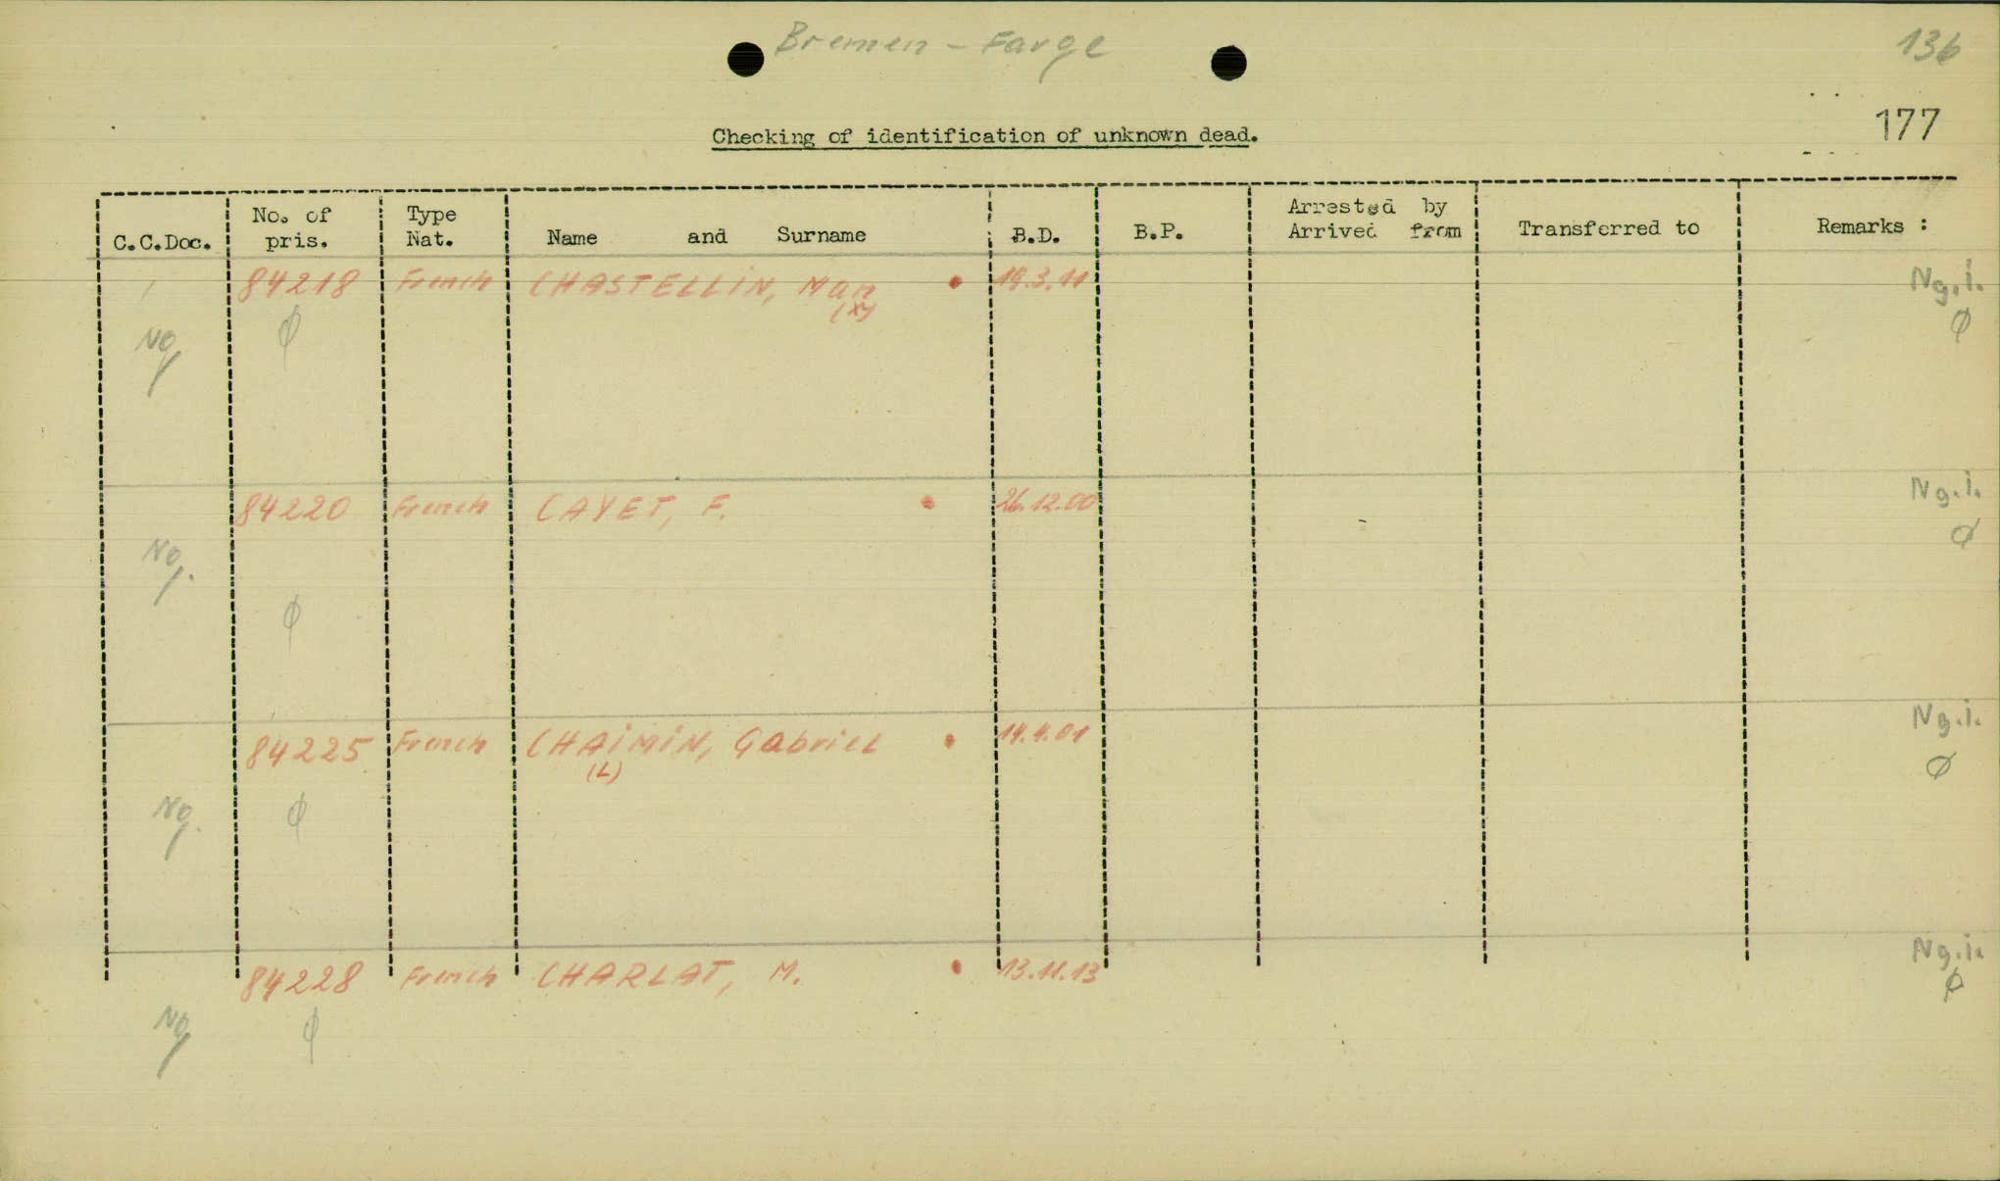 Bremen - Farge
136
177
Checking of identification of unknown dead.
C.C.Doc. No. of pris. Type Nat. Name and Surname B.D. B.P. Arrested by Arrived from Transferred to Remarks :
84218 French CHASTELLIN, Man 19.3.11 Ng.i.
(x)
Ng ϕ ϕ
84220 French CAYET, F. 26.12.00 Ng.i.
Ng. ϕ ϕ
84225 French CHAIMIN, Gabriel 19.4.01 Ng.i.
(L)
Ng. ϕ ϕ
84228 French CHARLAT, M. 13.11.13 Ng.i.
Ng ϕ ϕ